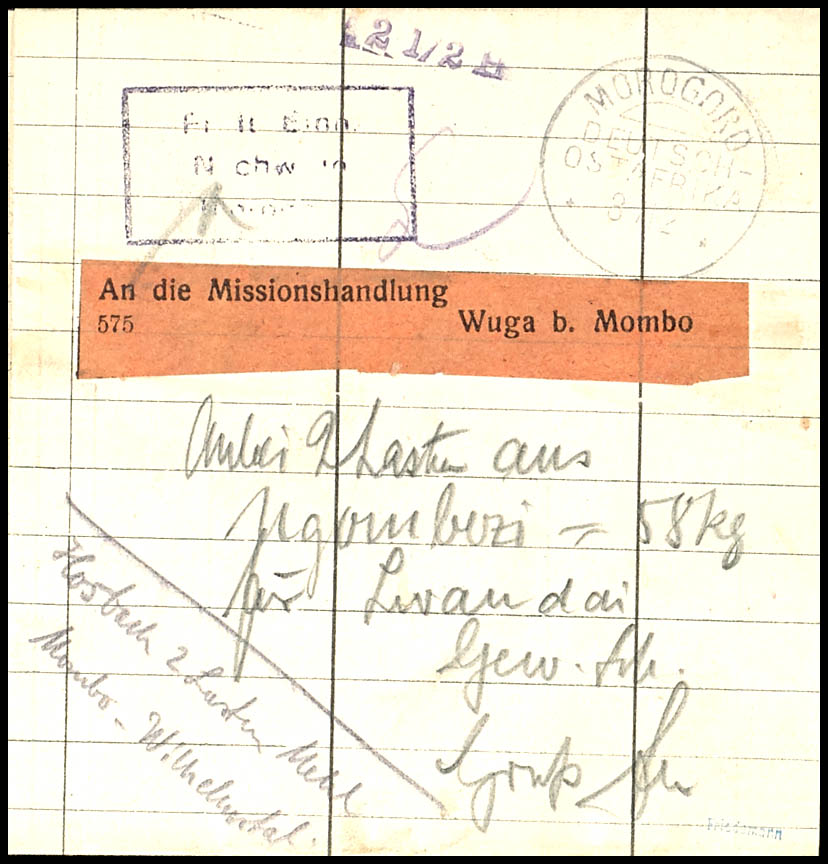 2 1/2 H
MOROGORO
DEUTSCH-
OSTAFRIKA
An die Missionshandlung
575 Wuga b. Mombo
Anbei 2 Lasten aus
Ngombezi = 58 kg
für Lwandai
Gew. Sch.
Gruß
Hosbach 2 Lasten Mehl
Mombo - Wilhelmstal.
Friedemann